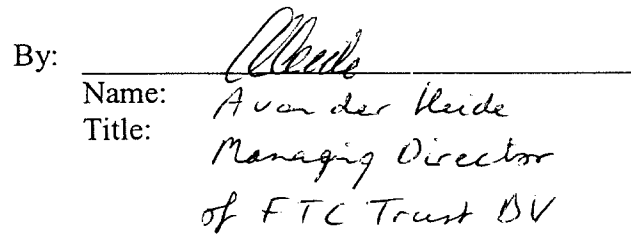 By:
Name: A van der Heide
Title: Managing Director
of FTC Trust BV